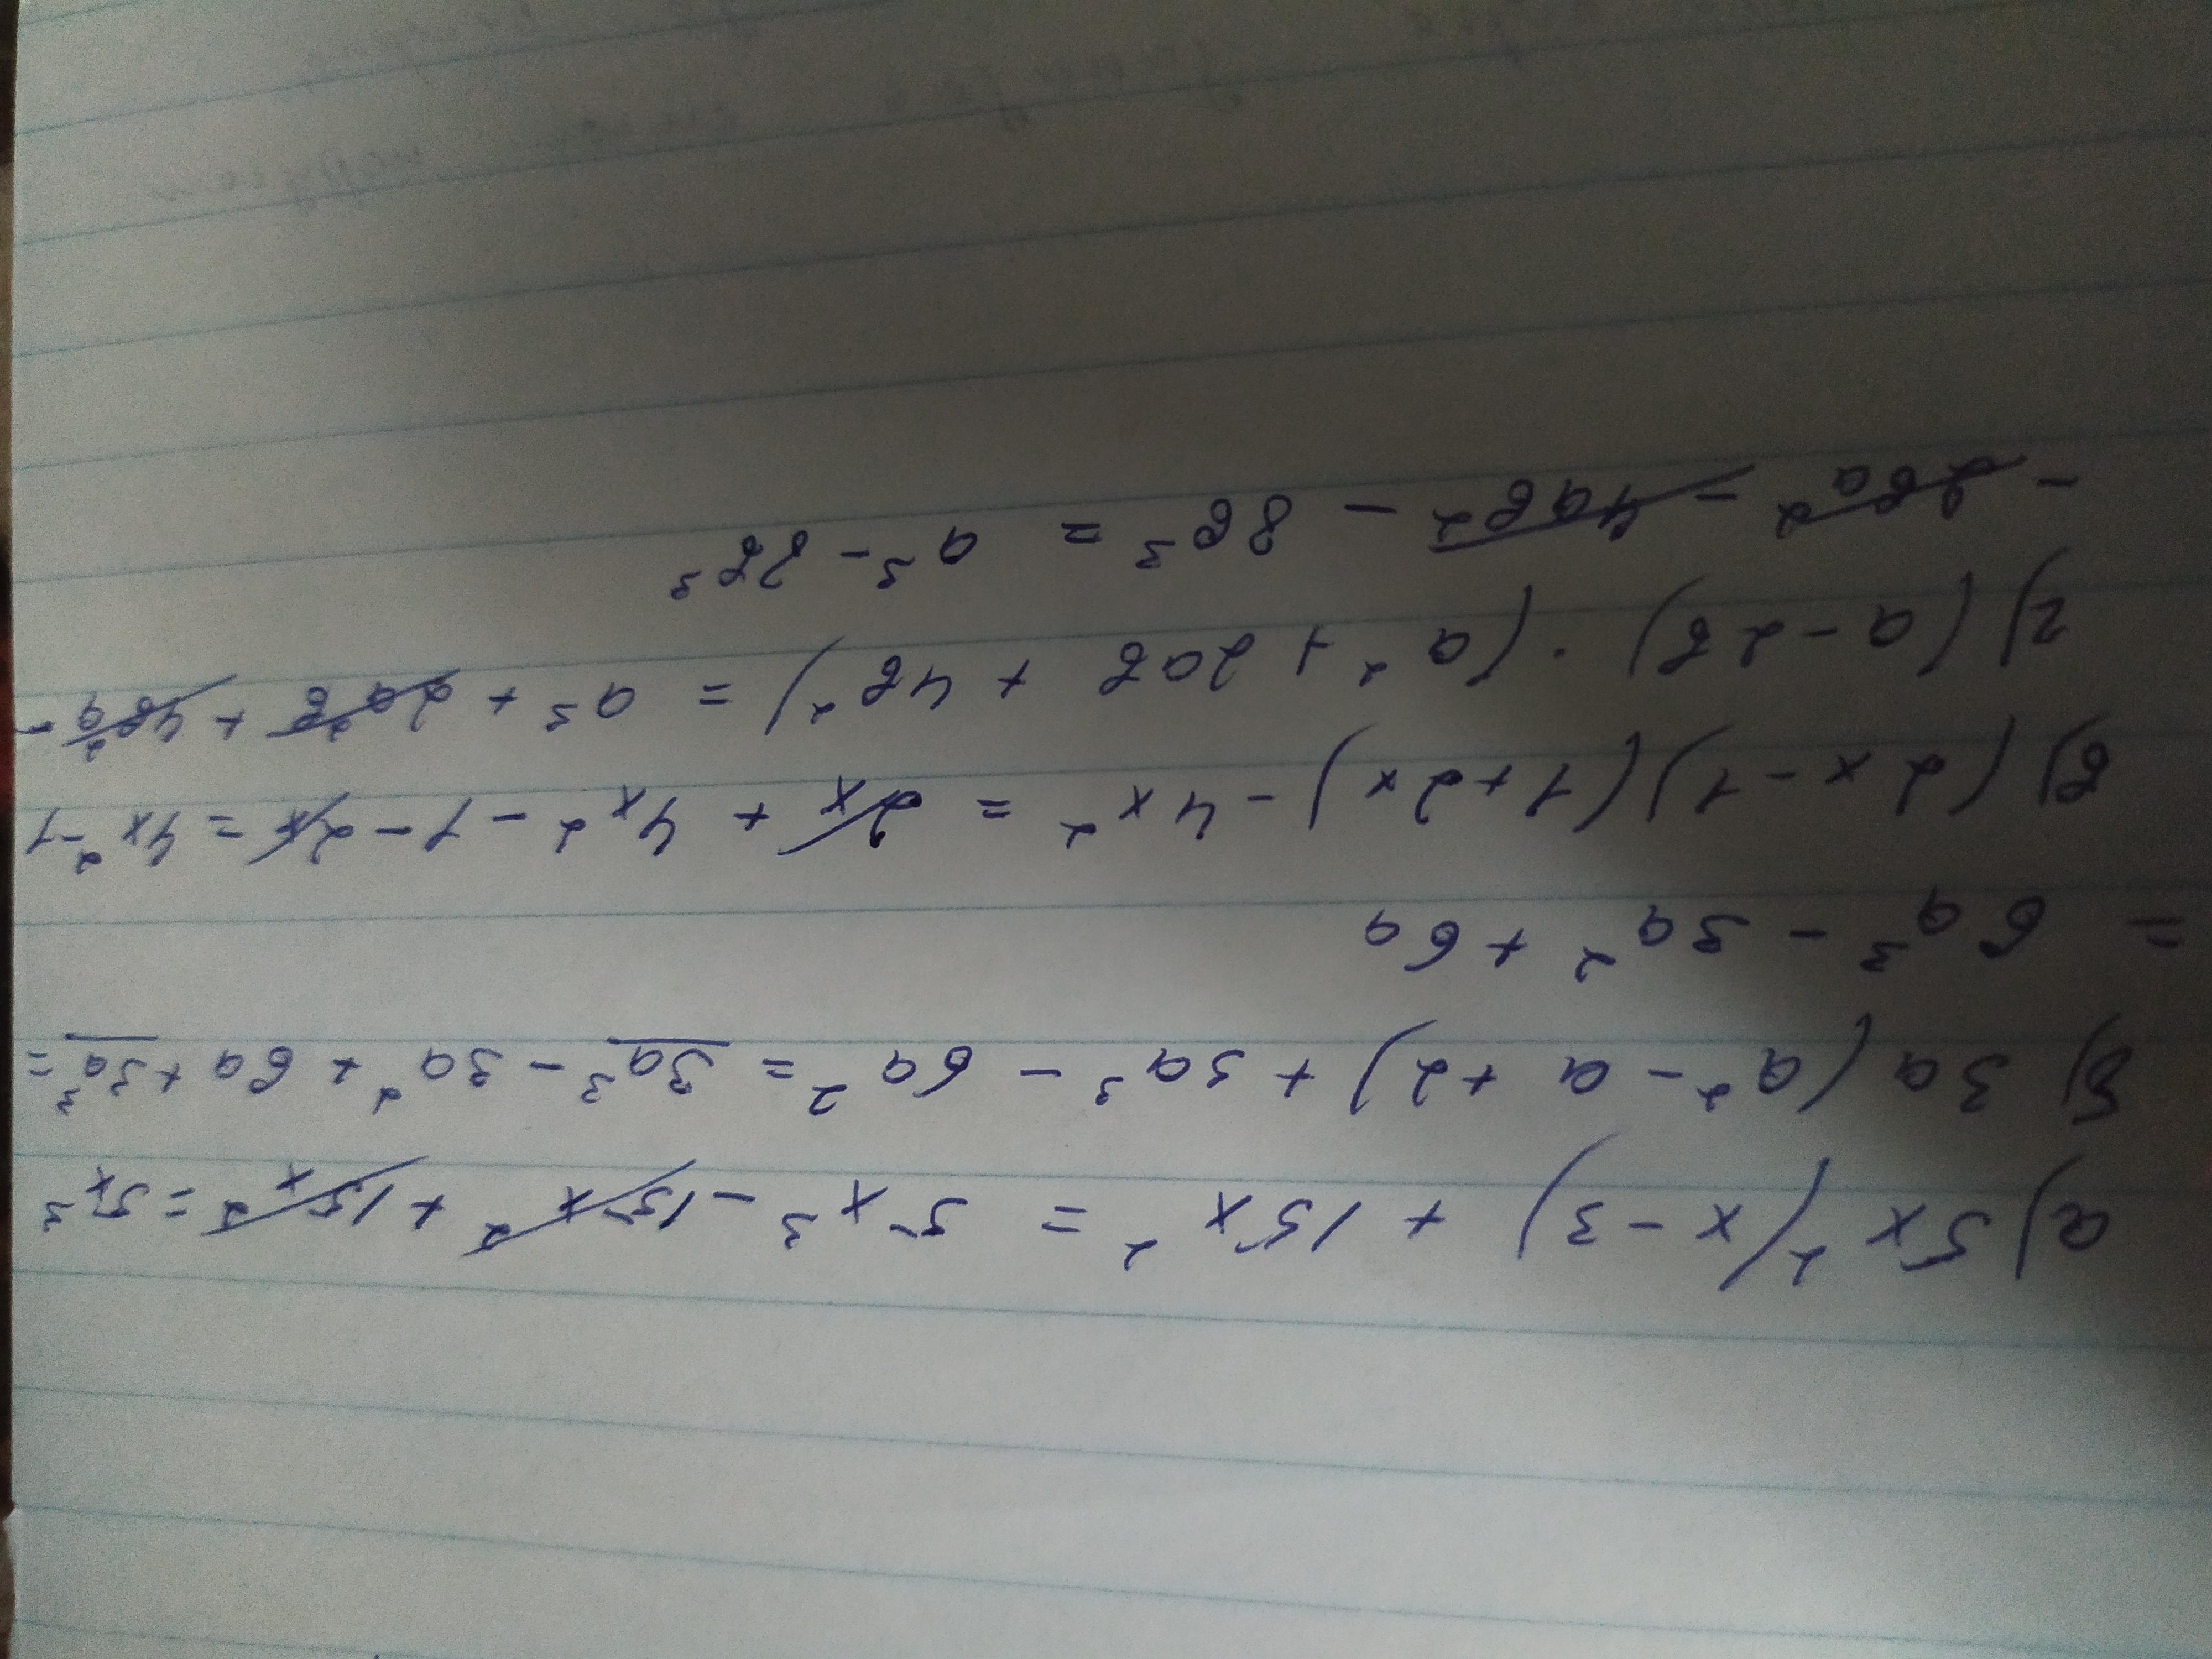 а) 5x²(x-3) + 15x² = 5x³ - 15x² + 15x² = 5x³
б) 3a(a² - a + 2) + 3a³ - 6a² = 3a³ - 3a² + 6a + 3a³ =
= 6a³ - 3a² + 6a
в) (2x-1)(1+2x) - 4x² = 2x + 4x² - 1 - 2x = 4x² - 1
г) (a-2b) · (a² + 2ab + 4b²) = a³ + 2a²b + 4b²a -
- 2ba² - 4ab² - 8b³ = a³ - 8b³